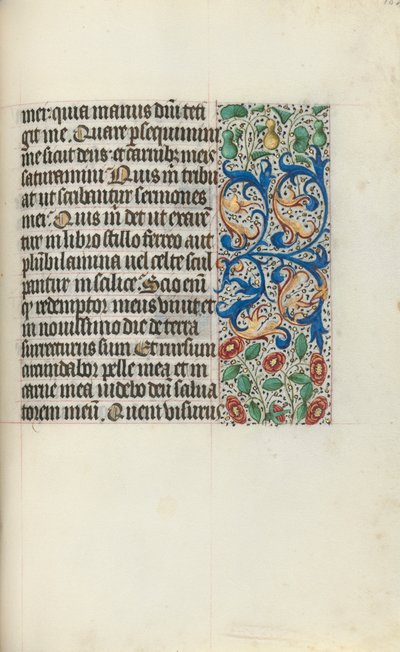 mei: quia manus dñi teti
git me. Quare persequimini
me sicut deus: et carnibꝫ meis
saturamini Quis m tribu
at ut scribantur sermones
mei: Quis m det ut exaren
tur in libro stillo ferreo aut
plũbi lamina vel celte scul
pantur in scilice. Scio enĩ
qꝫ redemptor meus vivit et
in novissimo die de terra
surrecturus sum Et rursum
circundabor pelle mea et in
carne mea videbo deũ salua
torem meũ. Quem visurus